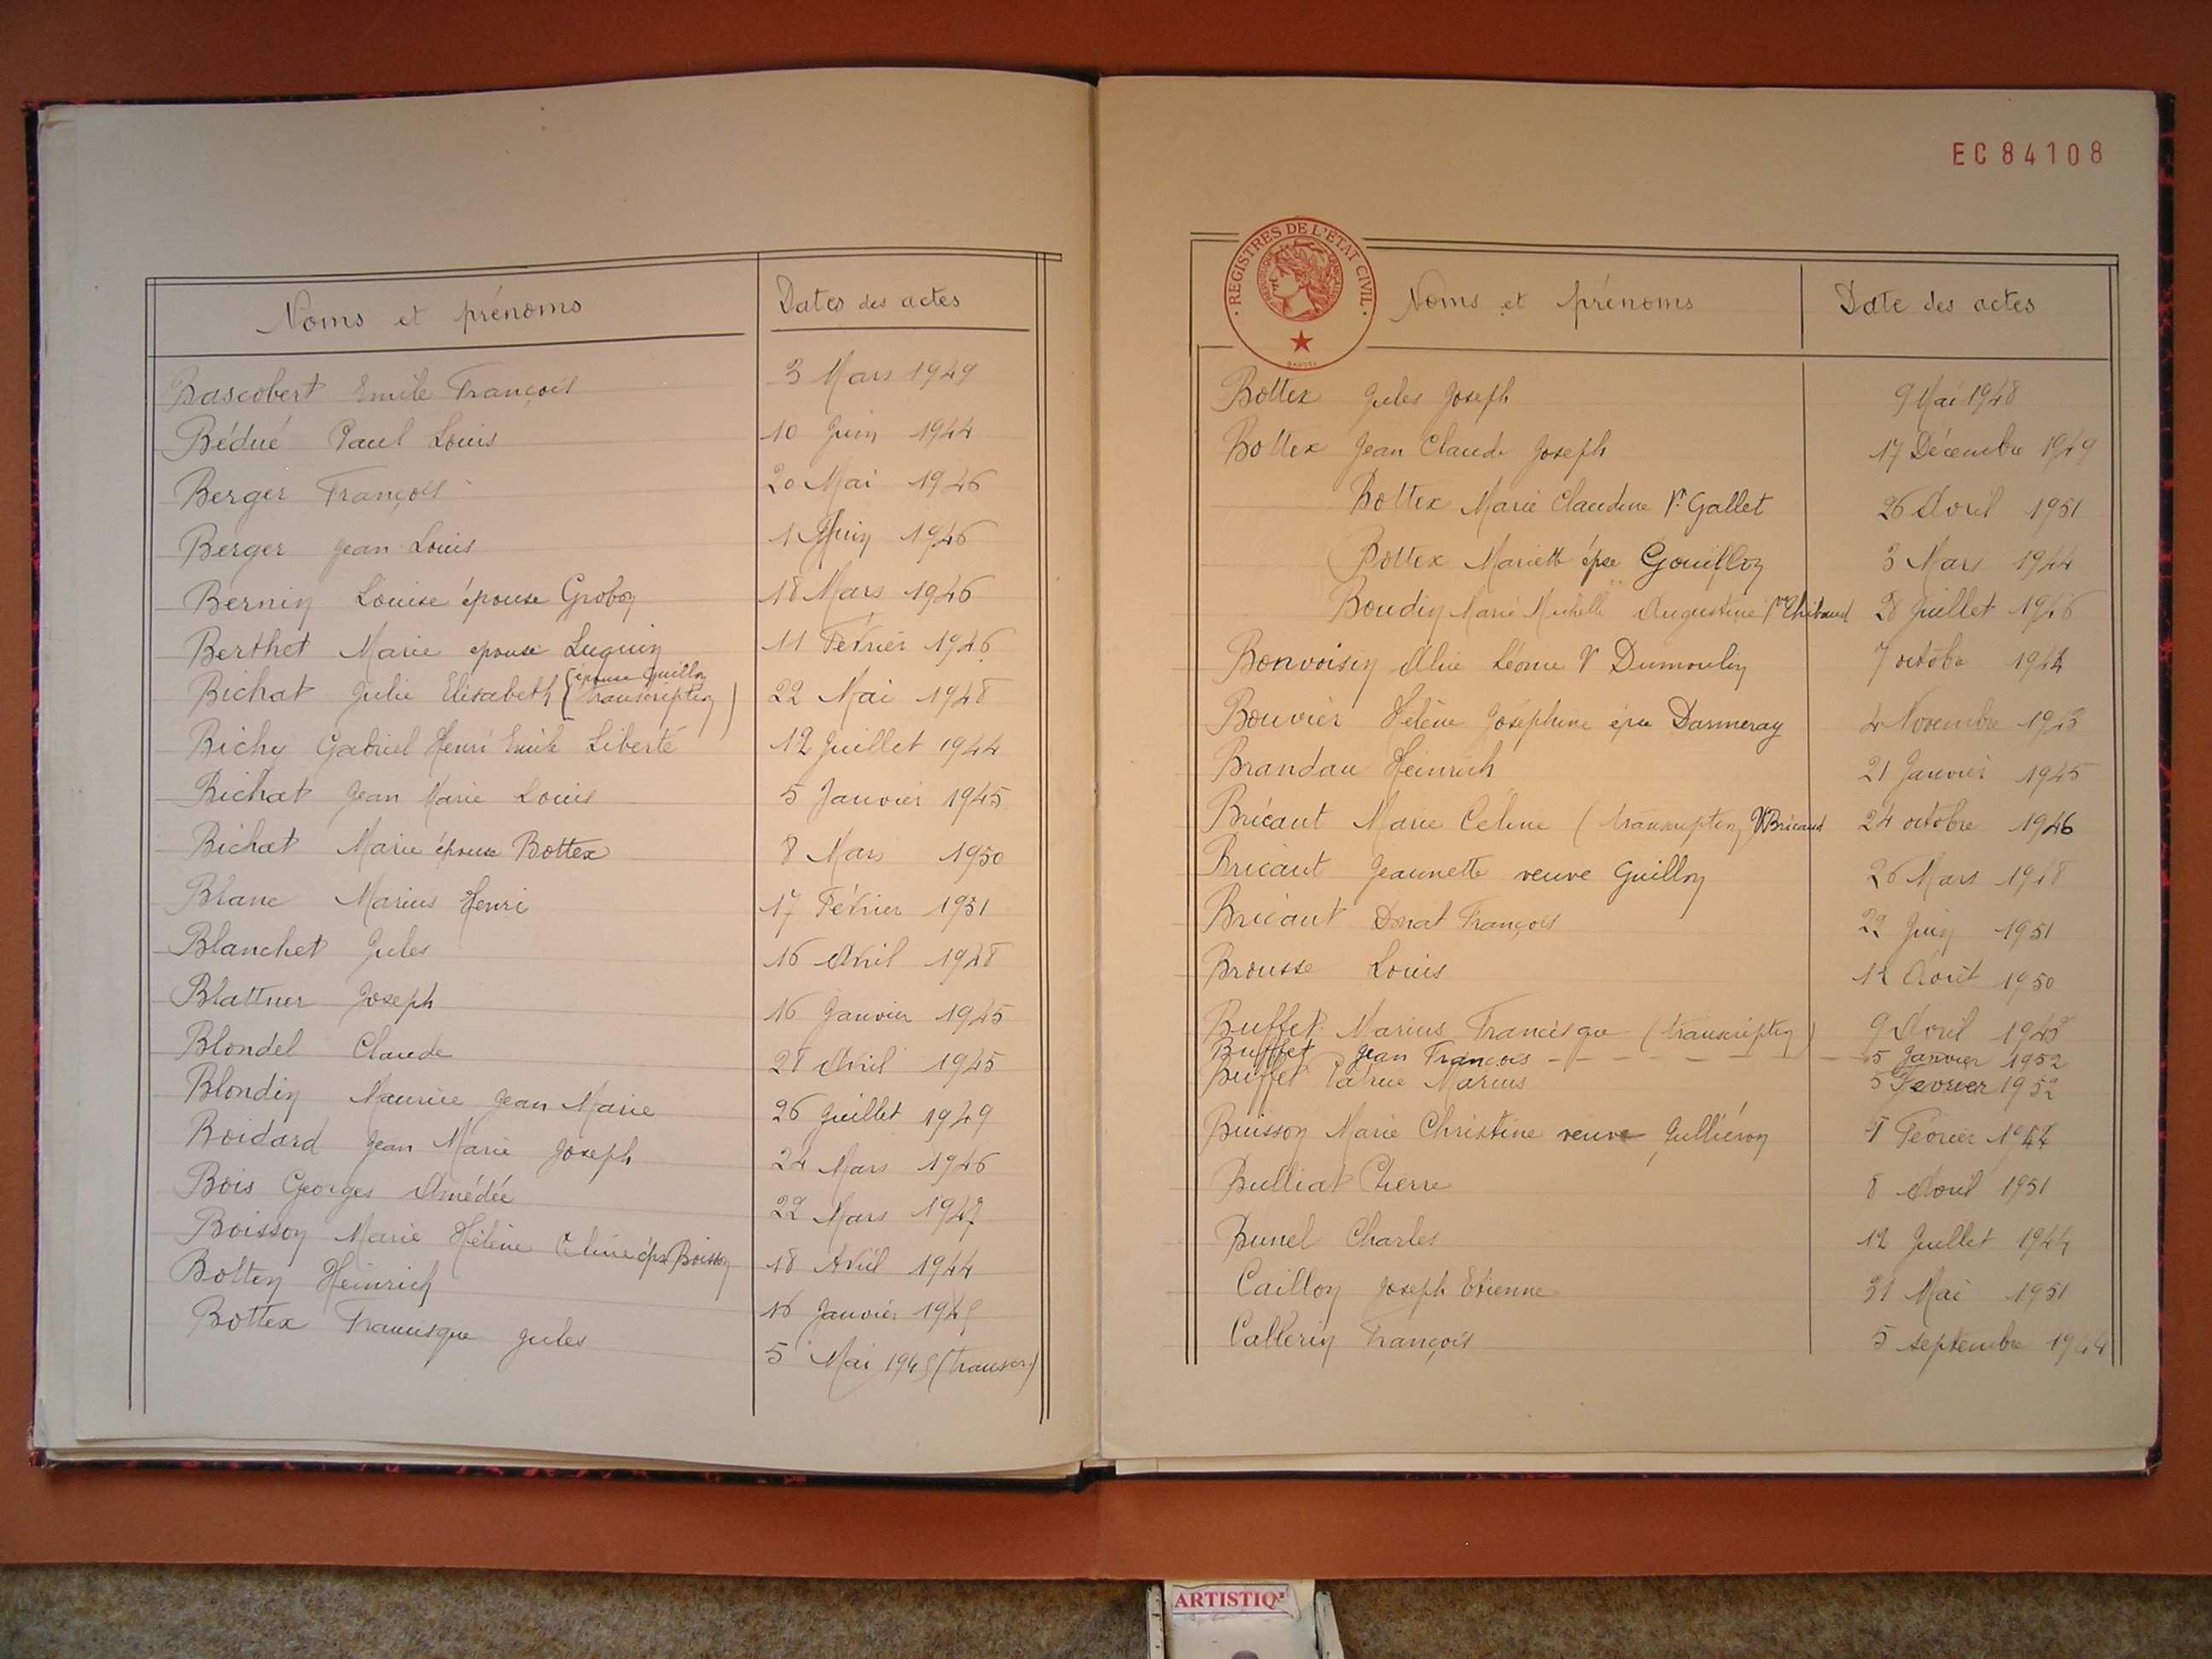 Noms et prénoms Dates des actes
Bascobert Emile François 3 Mars 1949
Bédué Paul Louis 10 Juin 1944
Berger François 20 Mai 1946
Berger Jean Louis 1 Juin 1946
Bernin Louise épouse Grobon 18 Mars 1946
Berthet Marie epouse Luquin 11 Février 1946
(épouse Guillon
Bichat Julie Elisabeth (transcription) 22 Mai 1948
Bichy Gabriel Henri Emile Liberté 12 Juillet 1944
Bichat Jean Marie Louis 5 Janvier 1945
Bichat Marie épouse Bottex 8 Mars 1950
Blanc Marius Henri 17 Février 1951
Blanchet Jules 16 Avril 1948
Blattner Joseph 16 Janvier 1945
Blondel Claude 28 Avril 1945
Blondin Maurice Jean Marie 26 Juillet 1949
Boidard Jean Marie Joseph 24 Mars 1946
Bois Georges Amédée 22 Mars 1947
Boisson Marie Hélène Céline épse Boisson 18 Avril 1944
Bolten Heinrich 16 Janvier 1945
Bottex Francisque Jules 5 Mai 1945 (transcr.)
EC84108
REGISTRES DE L'ÉTAT CIVIL
Noms et prénoms Date des actes
Bottex Jules Joseph 9 Mai 1948
Bottex Jean Claude Joseph 17 Décembre 1949
Bottex Marie Claudine Vᵉ Gallet 26 Avril 1951
Bottex Mariette épse Gouillon 3 Mars 1944
Boudin Marie Michelle Augustine Vve Thibaud 28 Juillet 1946
Bonvoisin Alice Léonie V Dumoulin 7 octobre 1944
Bouvier Hélène Joséphine épse Darmeray 4 Novembre 1943
Brandau Heinrich 21 Janvier 1945
Bricaut Marie Céline (transcription) V Bricaud 24 octobre 1946
Bricaut Jeannette veuve Guillon 26 Mars 1948
Bricaut Donat François 22 Juin 1951
Brousse Louis 12 Août 1950
Buffet Marius Francisque (transcription) 9 Avril 1945
Buffet Jean François - - - - - - - 5 Janvier 1952
Buffet Patrice Marius 5 Fevrier 1952
Buisson Marie Christine veuve Julliéron 8 Février 1944
Bulliat Pierre 8 Avril 1951
Bunel Charles 12 Juillet 1944
Caillon Joseph Etienne 31 Mai 1951
Callerin François 5 septembre 1944
ARTISTIQ